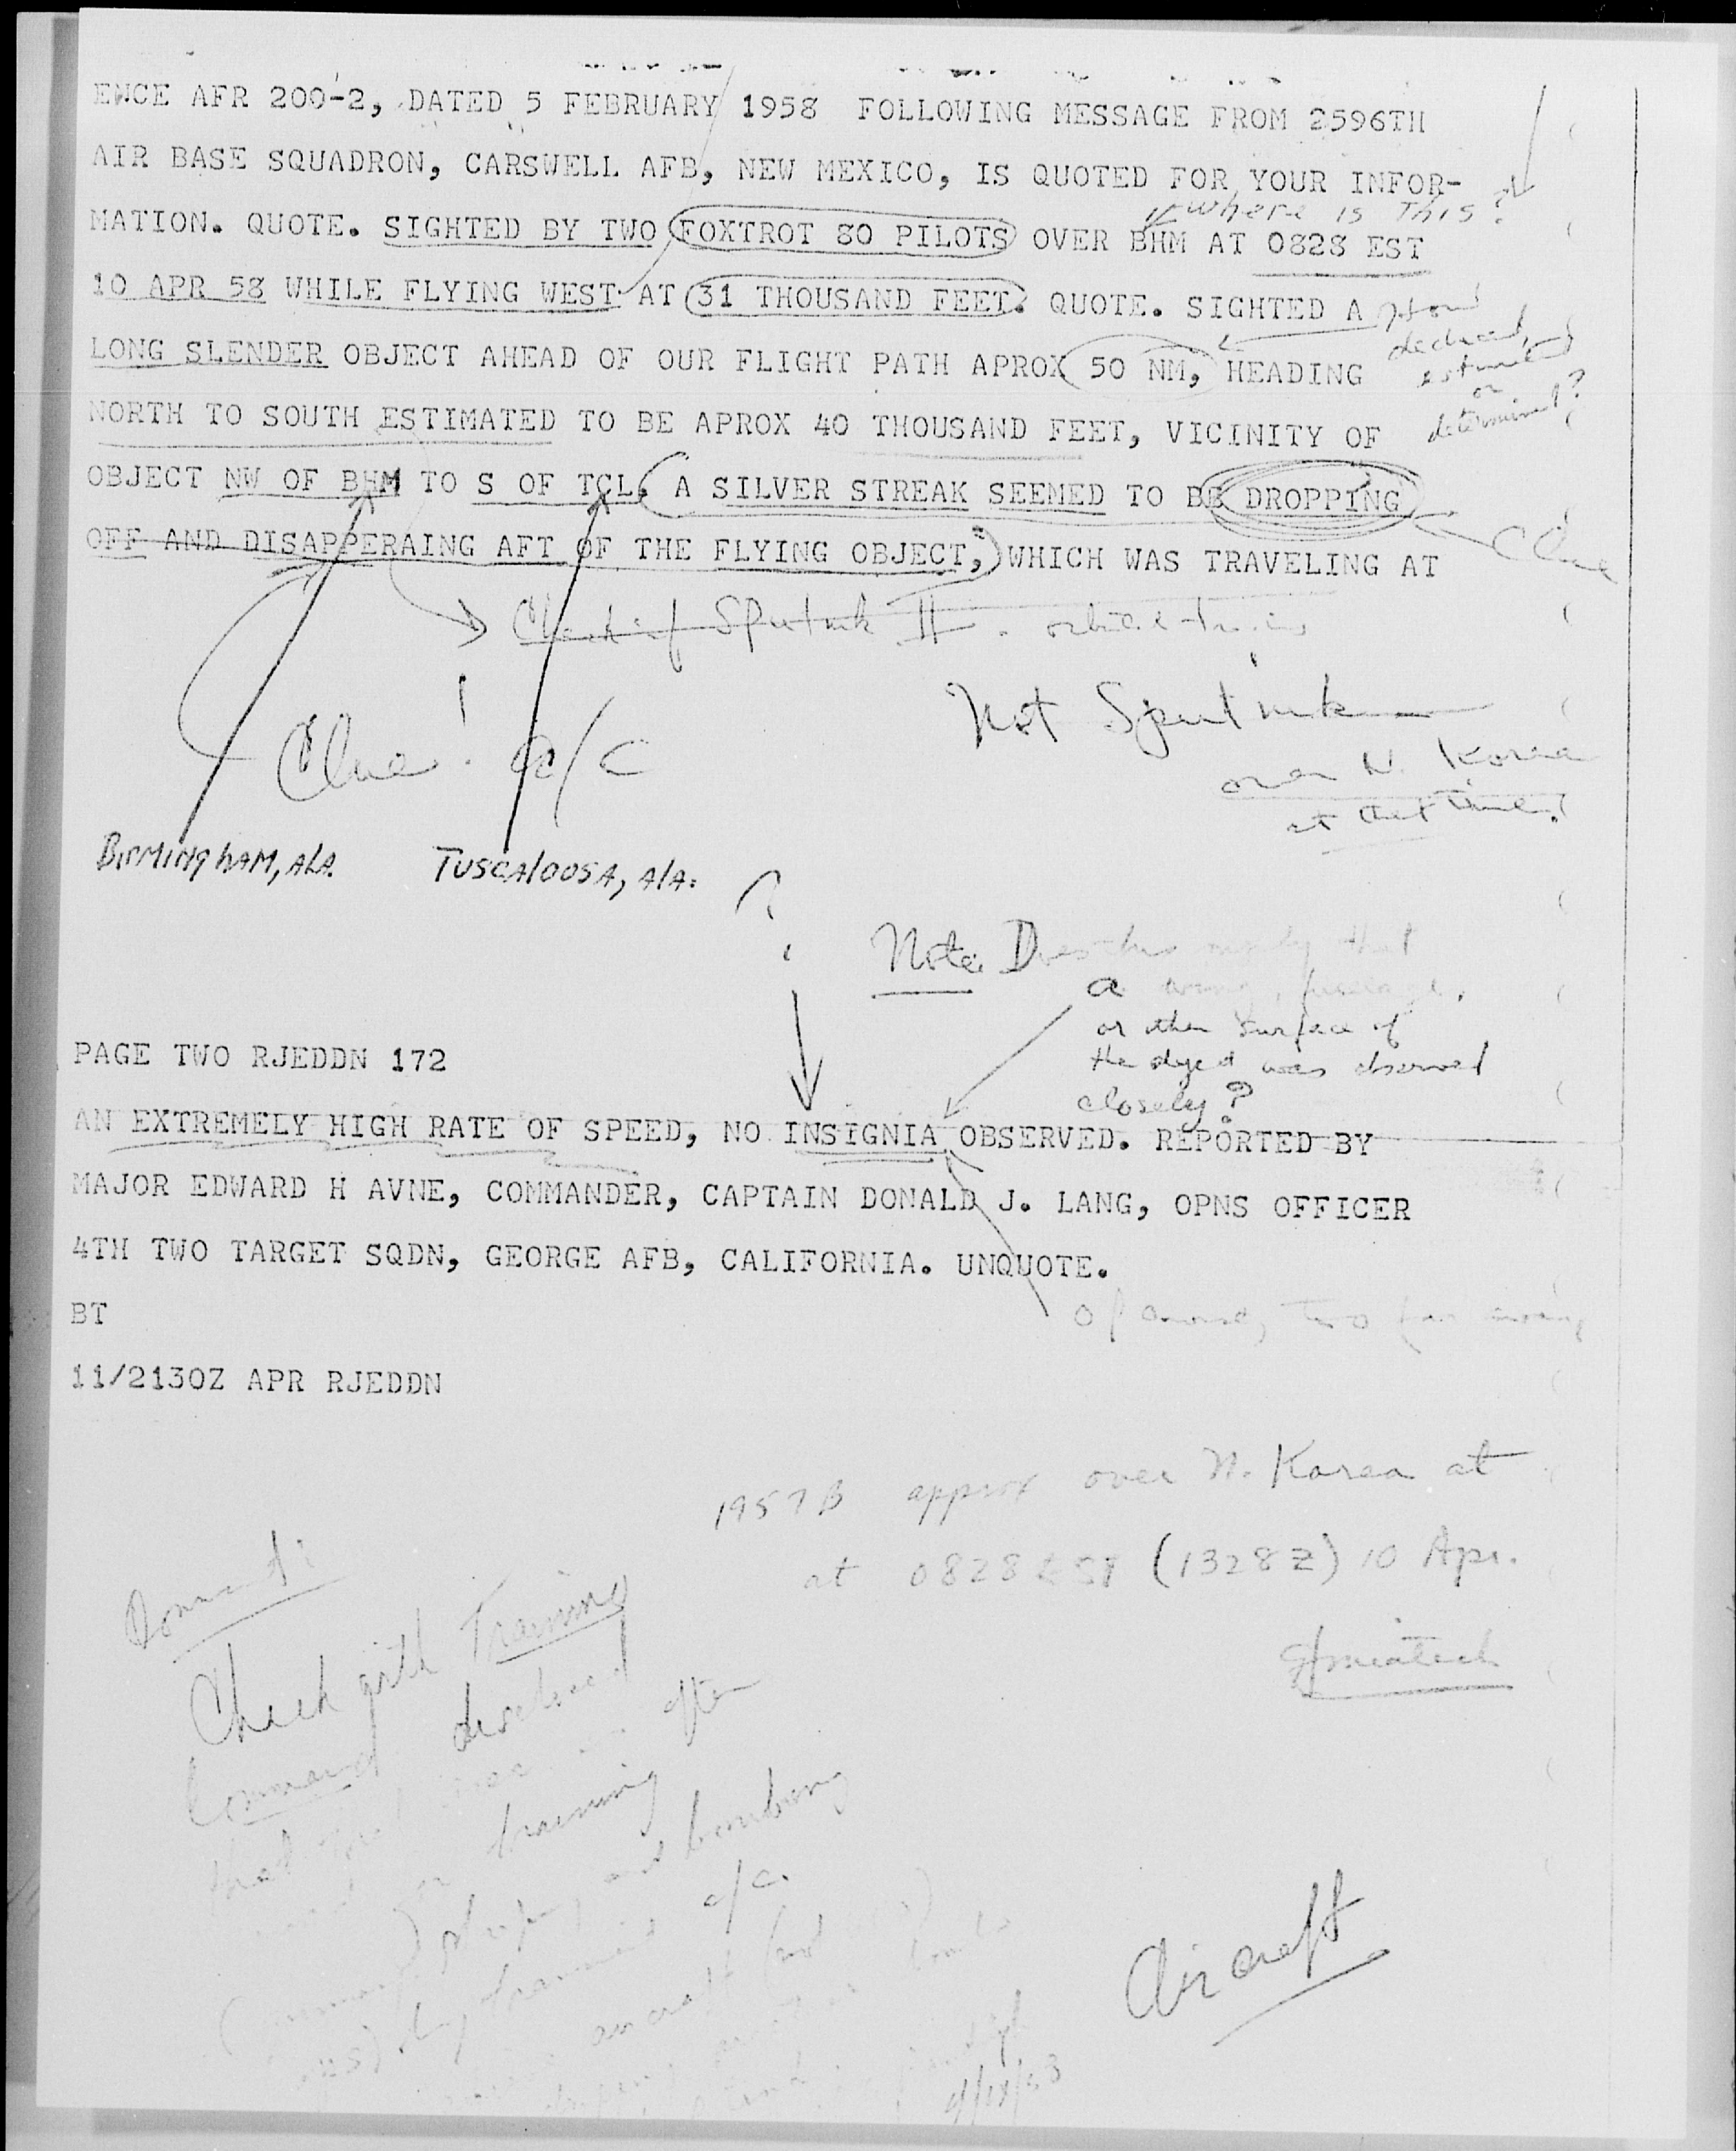 ENCE AFR 200-2, DATED 5 FEBRUARY 1958 FOLLOWING MESSAGE FROM 2596TH
AIR BASE SQUADRON, CARSWELL AFB, NEW MEXICO, IS QUOTED FOR YOUR INFOR-
where is This?
MATION. QUOTE. SIGHTED BY TWO FOXTROT 80 PILOTS OVER BHM AT 0828 EST
10 APR 58 WHILE FLYING WEST AT 31 THOUSAND FEET. QUOTE. SIGHTED A
How
deduced,
estimated
or
determined?
LONG SLENDER OBJECT AHEAD OF OUR FLIGHT PATH APROX 50 NM, HEADING
NORTH TO SOUTH ESTIMATED TO BE APROX 40 THOUSAND FEET, VICINITY OF
OBJECT NW OF BHM TO S OF TCL, A SILVER STREAK SEEMED TO BE DROPPING
OFF AND DISAPPERAING AFT OF THE FLYING OBJECT, WHICH WAS TRAVELING AT
Clue
Check if Sputnik II
Not Sputnik
over N. Korea
at that time!
Clue! a/c
BIRMINGHAM, ALA.
TUSCALOOSA, ALA.
?
Note: Does this imply that
a wing, fuselage,
or other surface of
the object was observed
closely?
PAGE TWO RJEDDN 172
AN EXTREMELY HIGH RATE OF SPEED, NO INSIGNIA OBSERVED. REPORTED BY
MAJOR EDWARD H AVNE, COMMANDER, CAPTAIN DONALD J. LANG, OPNS OFFICER
4TH TWO TARGET SQDN, GEORGE AFB, CALIFORNIA. UNQUOTE.
BT
Of course, too far away
11/2130Z APR RJEDDN
1957 B approx over N. Korea at
at 0828 EST (1328Z) 10 Apr.
Check with Training
Command disclosed
that often
training
and bombing
a/c.
aircraft
Aircraft